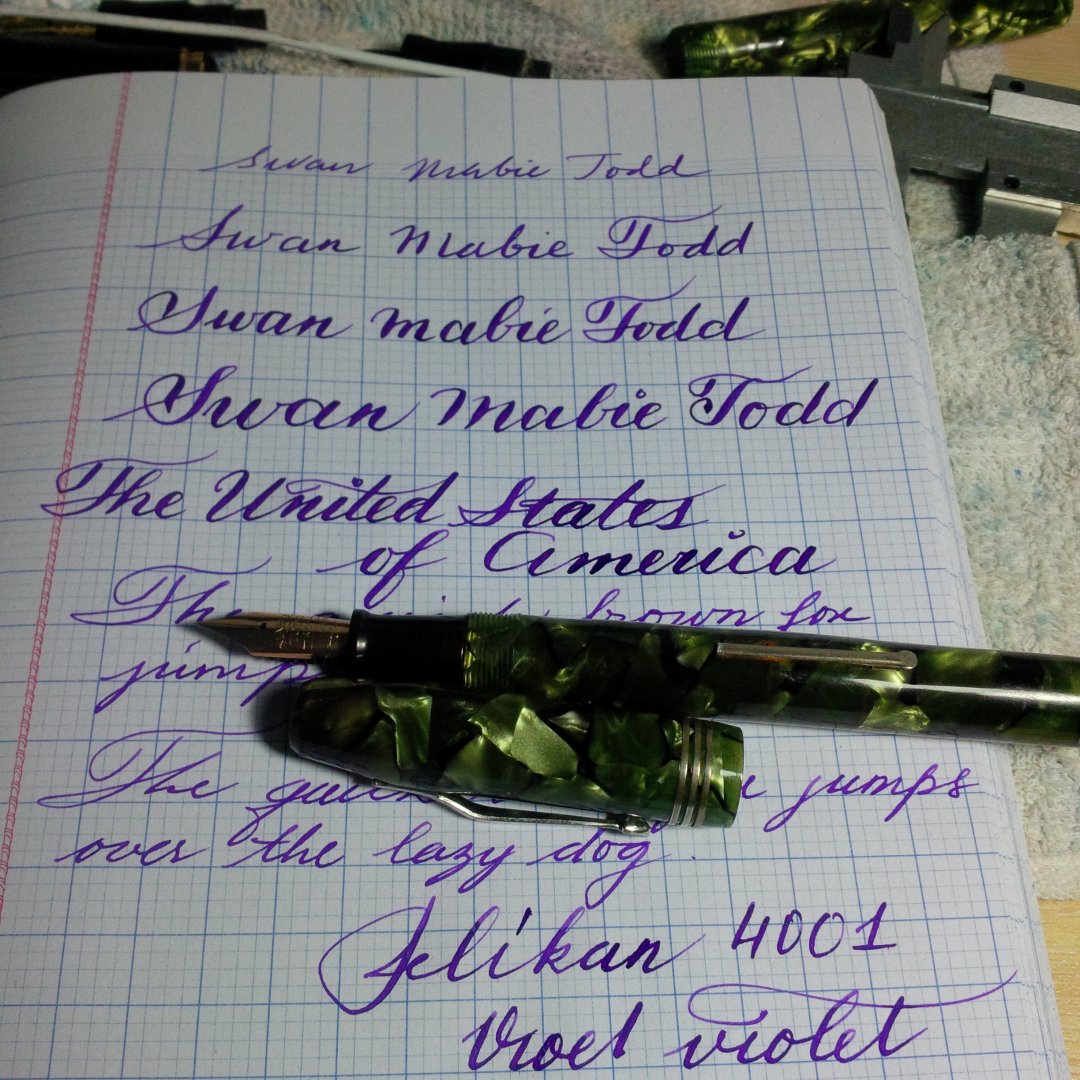 Swan Mabie Todd
Swan Mabie Todd
Swan mabie Todd
Swan Mabie Todd
The United States
of America
The brown fox
jump
The jumps
over the lazy dog.
Pelikan 4001
Violet